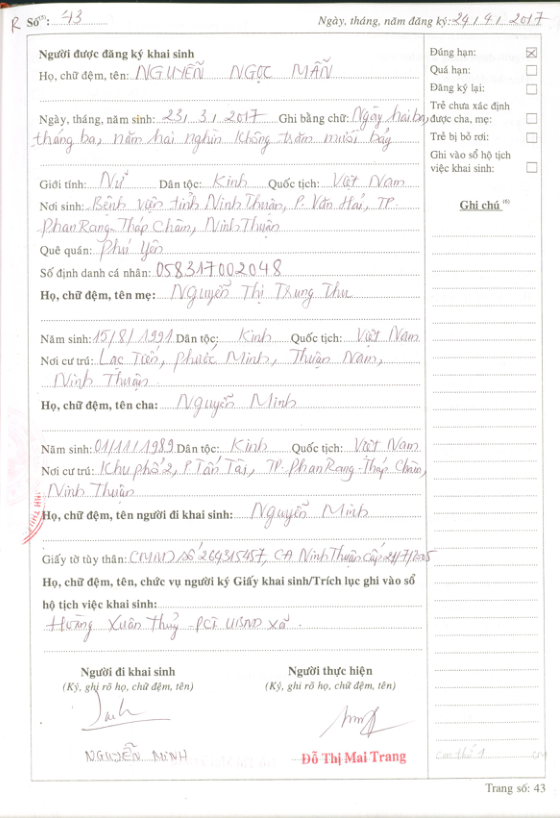 R Số⁽⁵⁾: 43 Ngày, tháng, năm đăng ký: 24/4/2017
Người được đăng ký khai sinh
Họ, chữ đệm, tên: NGUYỄN NGỌC MẪN
Ngày, tháng, năm sinh: 23/3/2017 Ghi bằng chữ: Ngày hai ba,
tháng ba, năm hai nghìn không trăm mười bảy
Giới tính: Nữ Dân tộc: Kinh Quốc tịch: Việt Nam
Nơi sinh: Bệnh viện tỉnh Ninh Thuận, P. Văn Hải, TP.
Phan Rang-Tháp Chàm, Ninh Thuận
Quê quán: Phú Yên
Số định danh cá nhân: 058317002048
Họ, chữ đệm, tên mẹ: Nguyễn Thị Trung Thu
Năm sinh: 15/8/1991 Dân tộc: Kinh Quốc tịch: Việt Nam
Nơi cư trú: Lạc Tiến, Phước Minh, Thuận Nam,
Ninh Thuận
Họ, chữ đệm, tên cha: Nguyễn Minh
Năm sinh: 01/11/1989 Dân tộc: Kinh Quốc tịch: Việt Nam
Nơi cư trú: Khu phố 2, P. Tấn Tài, TP. Phan Rang-Tháp Chàm,
Ninh Thuận
Họ, chữ đệm, tên người đi khai sinh: Nguyễn Minh
Giấy tờ tùy thân: CMND số 264315457, CA Ninh Thuận cấp
Họ, chữ đệm, tên, chức vụ người ký Giấy khai sinh/Trích lục ghi vào sổ
hộ tịch việc khai sinh:
Hoàng Xuân Thuỷ - PCT UBND xã
Người đi khai sinh
(Ký, ghi rõ họ, chữ đệm, tên)
NGUYỄN MINH
Người thực hiện
(Ký, ghi rõ họ, chữ đệm, tên)
Đỗ Thị Mai Trang
Đúng hạn: ☒
Quá hạn: ☐
Đăng ký lại: ☐
Trẻ chưa xác định
được cha, mẹ: ☐
Trẻ bị bỏ rơi: ☐
Ghi vào sổ hộ tịch
việc khai sinh: ☐
Ghi chú ⁽⁶⁾
Trang số: 43